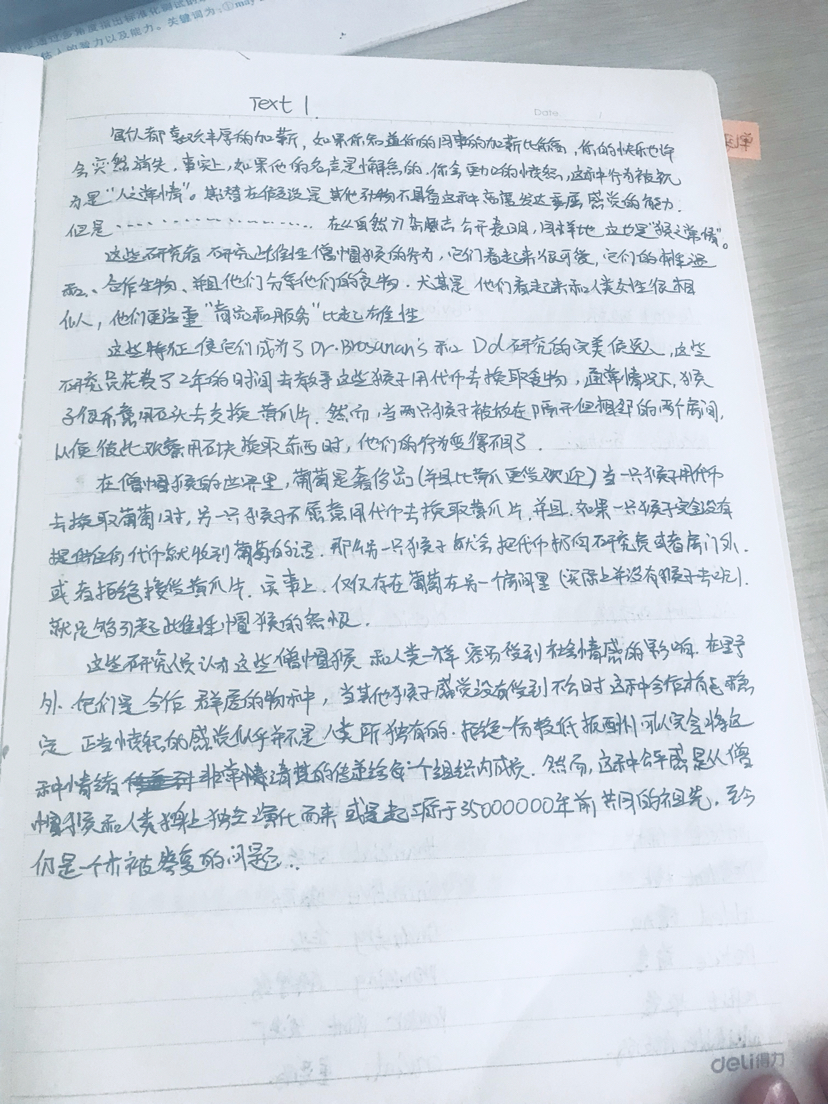 Text 1.
Date
我们都喜欢丰厚的加薪，如果你知道你的同事的加薪比你高，你的快乐也许
会突然消失，事实上，如果他的名声是懈怠的，你会更加的愤怒，这种行为被视
为是"人之常情"。其潜在假设是其他动物不具备这种高度发达
感觉的能力．
但是………… 在《自然》杂志去公开表明，同样地 这也是"猴之常情"。
这些研究者 研究雌性僧帽猴的行为，它们看起来很可爱，它们
合作生物，并且他们分享他们的食物．尤其是 他们看起来和人类女性很相
似，他们更注重"商品和服务"比起雄性
这些特征使它们成为了Dr. Brosnan's 和 Dol 研究的完美候选，这些
研究员花费了2年的时间去教导这些猴子用代币去换取食物，通常情况下，猴
子很乐意用石头去交换黄瓜片．然而，当两只猴子被放在隔开但相邻的两个房间，
以便彼此观察用石块换取东西时，他们的行为变得不同了．
在僧帽猴的世界里，葡萄是奢侈品（并且比黄瓜更受欢迎）当一只猴子用代币
去换取葡萄时，另一只猴子不愿意用代币去换取黄瓜片，并且，如果一只猴子完全没有
提供任何代币就收到葡萄的话．那么另一只猴子就会把代币扔向研究员或者房门外．
或者拒绝接受黄瓜片．事实上，仅仅存在葡萄在另一个房间里（实际上并没有猴子去吃）．
就足够引起雌性帽猴的怨恨．
这些研究员认为这些僧帽猴 和人类一样 容易受到社会情感的影响．在野
外．他们是合作 群居的物种，当其他猴子感觉没有受到不公时 这种合作才能稳
定 正当愤怒的感觉似乎并不是人类所独有的．拒绝一份较低报酬 可以完全将这
种情绪 非常清楚的传递给每个组织内成员．然而，这种公平感是从僧
帽猴和人类身上独立演化而来 或是起源于35000000年前 共同的祖先，至今
仍是一个未被答复的问题．
deli得力